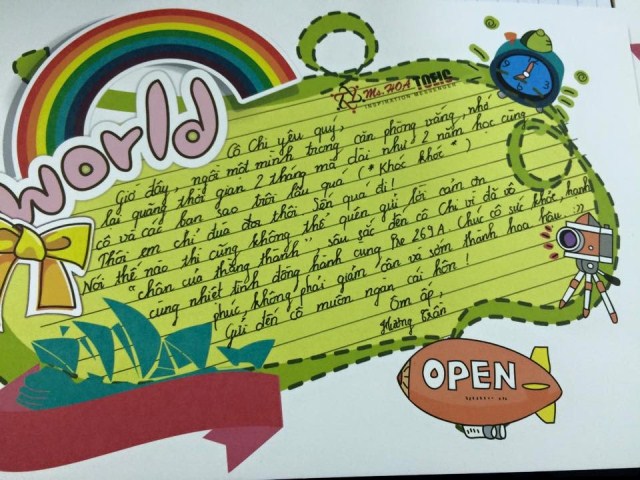 world
Ms. HOA TOEIC
INSPIRATION MESSENGER
Cô Chi yêu quý,
Giờ đây, ngồi một mình trong căn phòng vắng, nhớ
lại quãng thời gian 2 tháng mà dài như 2 năm học cùng
cô và các bạn sao trôi lâu quá (*Khóc khóc*)
Thôi em chỉ đùa đấy thôi. Sến quá đi!
Nói thế nào thì cũng không thể quên gửi lời cảm ơn
"chân của thẳng thành", sâu sắc đến cô Chi vì đã vô
cùng nhiệt tình đồng hành cùng Pre 269A. Chúc cô sức khỏe, hạnh
phúc, không phải giảm cân và sớm thành hoa hậu. :))
Gửi đến cô muôn ngàn cái hôn!
Ôm ấp,
Hương Trần
OPEN